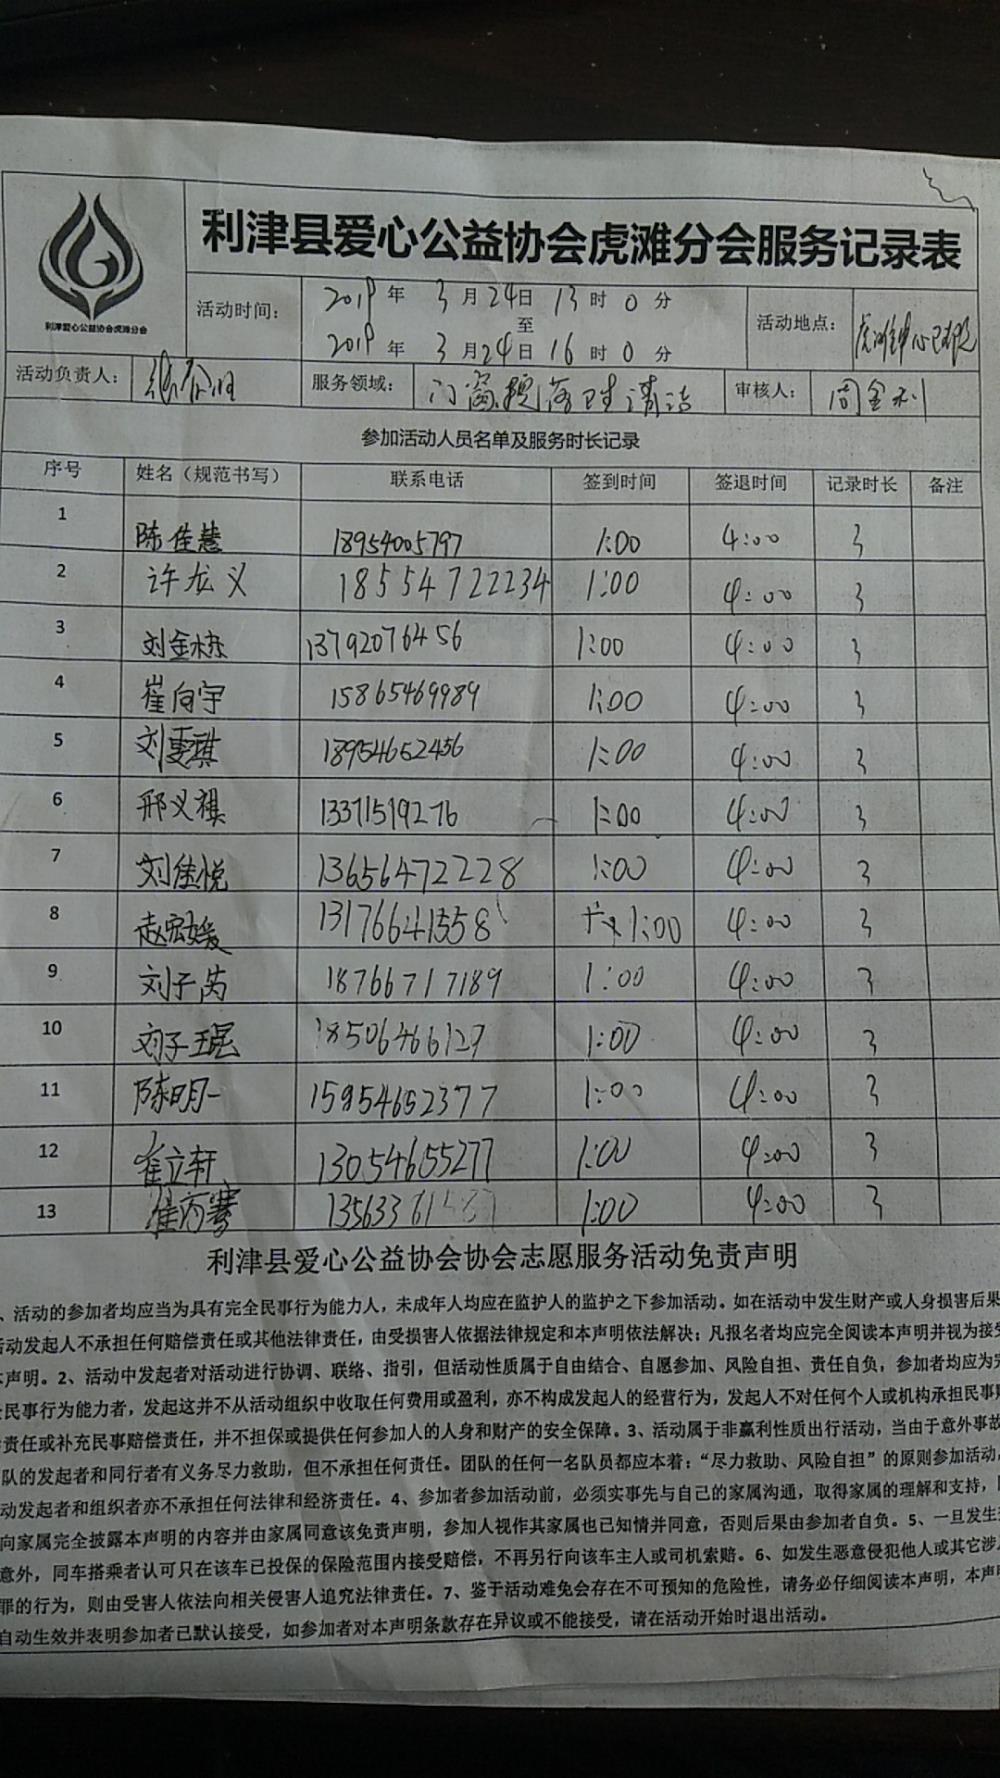 利津县爱心公益协会虎滩分会服务记录表
利津爱心公益协会虎滩分会
活动时间: 2019年 3月24日 13时 0分
至
2019年 3月24日 16时 0分
活动地点:
活动负责人:
服务领域: 清洁
审核人: 周金利
参加活动人员名单及服务时长记录
序号 姓名（规范书写） 联系电话 签到时间 签退时间 记录时长 备注
1 陈佳慧 18954005797 1:00 4:00 3
2 许龙义 18554722234 1:00 4:00 3
3 刘金栋 13792076456 1:00 4:00 3
4 崔向宇 15865469989 1:00 4:00 3
5 刘雯琪 18954652456 1:00 4:00 3
6 邢义祺 13371519276 1:00 4:00 3
7 刘佳悦 13656472228 1:00 4:00 3
8 赵宏媛 13176641558 1:00 4:00 3
9 刘子芮 18766717189 1:00 4:00 3
10 刘子琨 18506466129 1:00 4:00 3
11 陈明一 15954652377 1:00 4:00 3
12 崔立轩 13054655277 1:00 4:00 3
13 1:00 4:00 3
利津县爱心公益协会协会志愿服务活动免责声明
、活动的参加者均应当为具有完全民事行为能力人，未成年人均应在监护人的监护之下参加活动。如在活动中发生财产或人身损害后果
活动发起人不承担任何赔偿责任或其他法律责任，由受损害人依据法律规定和本声明依法解决；凡报名者均应完全阅读本声明并视为接受
本声明。2、活动中发起者对活动进行协调、联络、指引，但活动性质属于自由结合、自愿参加、风险自担、责任自负，参加者均应为完
全民事行为能力者，发起这并不从活动组织中收取任何费用或盈利，亦不构成发起人的经营行为，发起人不对任何个人或机构承担民事赔
责任或补充民事赔偿责任，并不担保或提供任何参加人的人身和财产的安全保障。3、活动属于非赢利性质出行活动，当由于意外事故
队的发起者和同行者有义务尽力救助，但不承担任何责任。团队的任何一名队员都应本着：“尽力救助、风险自担”的原则参加活动，
动发起者和组织者亦不承担任何法律和经济责任。4、参加者参加活动前，必须实事先与自己的家属沟通，取得家属的理解和支持，
向家属完全披露本声明的内容并由家属同意该免责声明，参加人视作其家属也已知情并同意，否则后果由参加者自负。5、一旦发生
意外，同车搭乘者认可只在该车已投保的保险范围内接受赔偿，不再另行向该车主人或司机索赔。6、如发生恶意侵犯他人或其它涉
罪的行为，则由受害人依法向相关侵害人追究法律责任。7、鉴于活动难免会存在不可预知的危险性，请务必仔细阅读本声明，本声明
自动生效并表明参加者已默认接受，如参加者对本声明条款存在异议或不能接受，请在活动开始时退出活动。